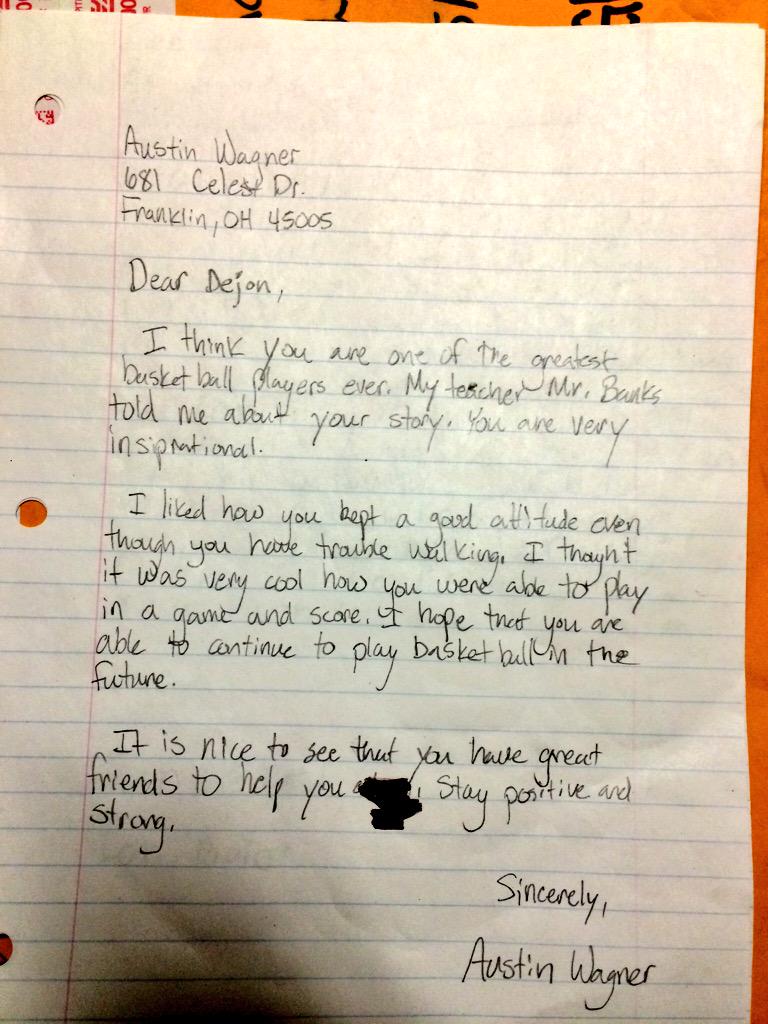 Austin Wagner
681 Celest Dr.
Franklin, OH 45005
Dear Dejon,
I think you are one of the greatest
basketball players ever. My teacher Mr. Banks
told me about your story. You are very
insiprational.
I liked how you kept a good attitude even
though you have trouble walking. I thought
it was very cool how you were able to play
in a game and score. I hope that you are
able to continue to play basketball in the
future.
It is nice to see that you have great
friends to help you . Stay positive and
strong.
Sincerely,
Austin Wagner